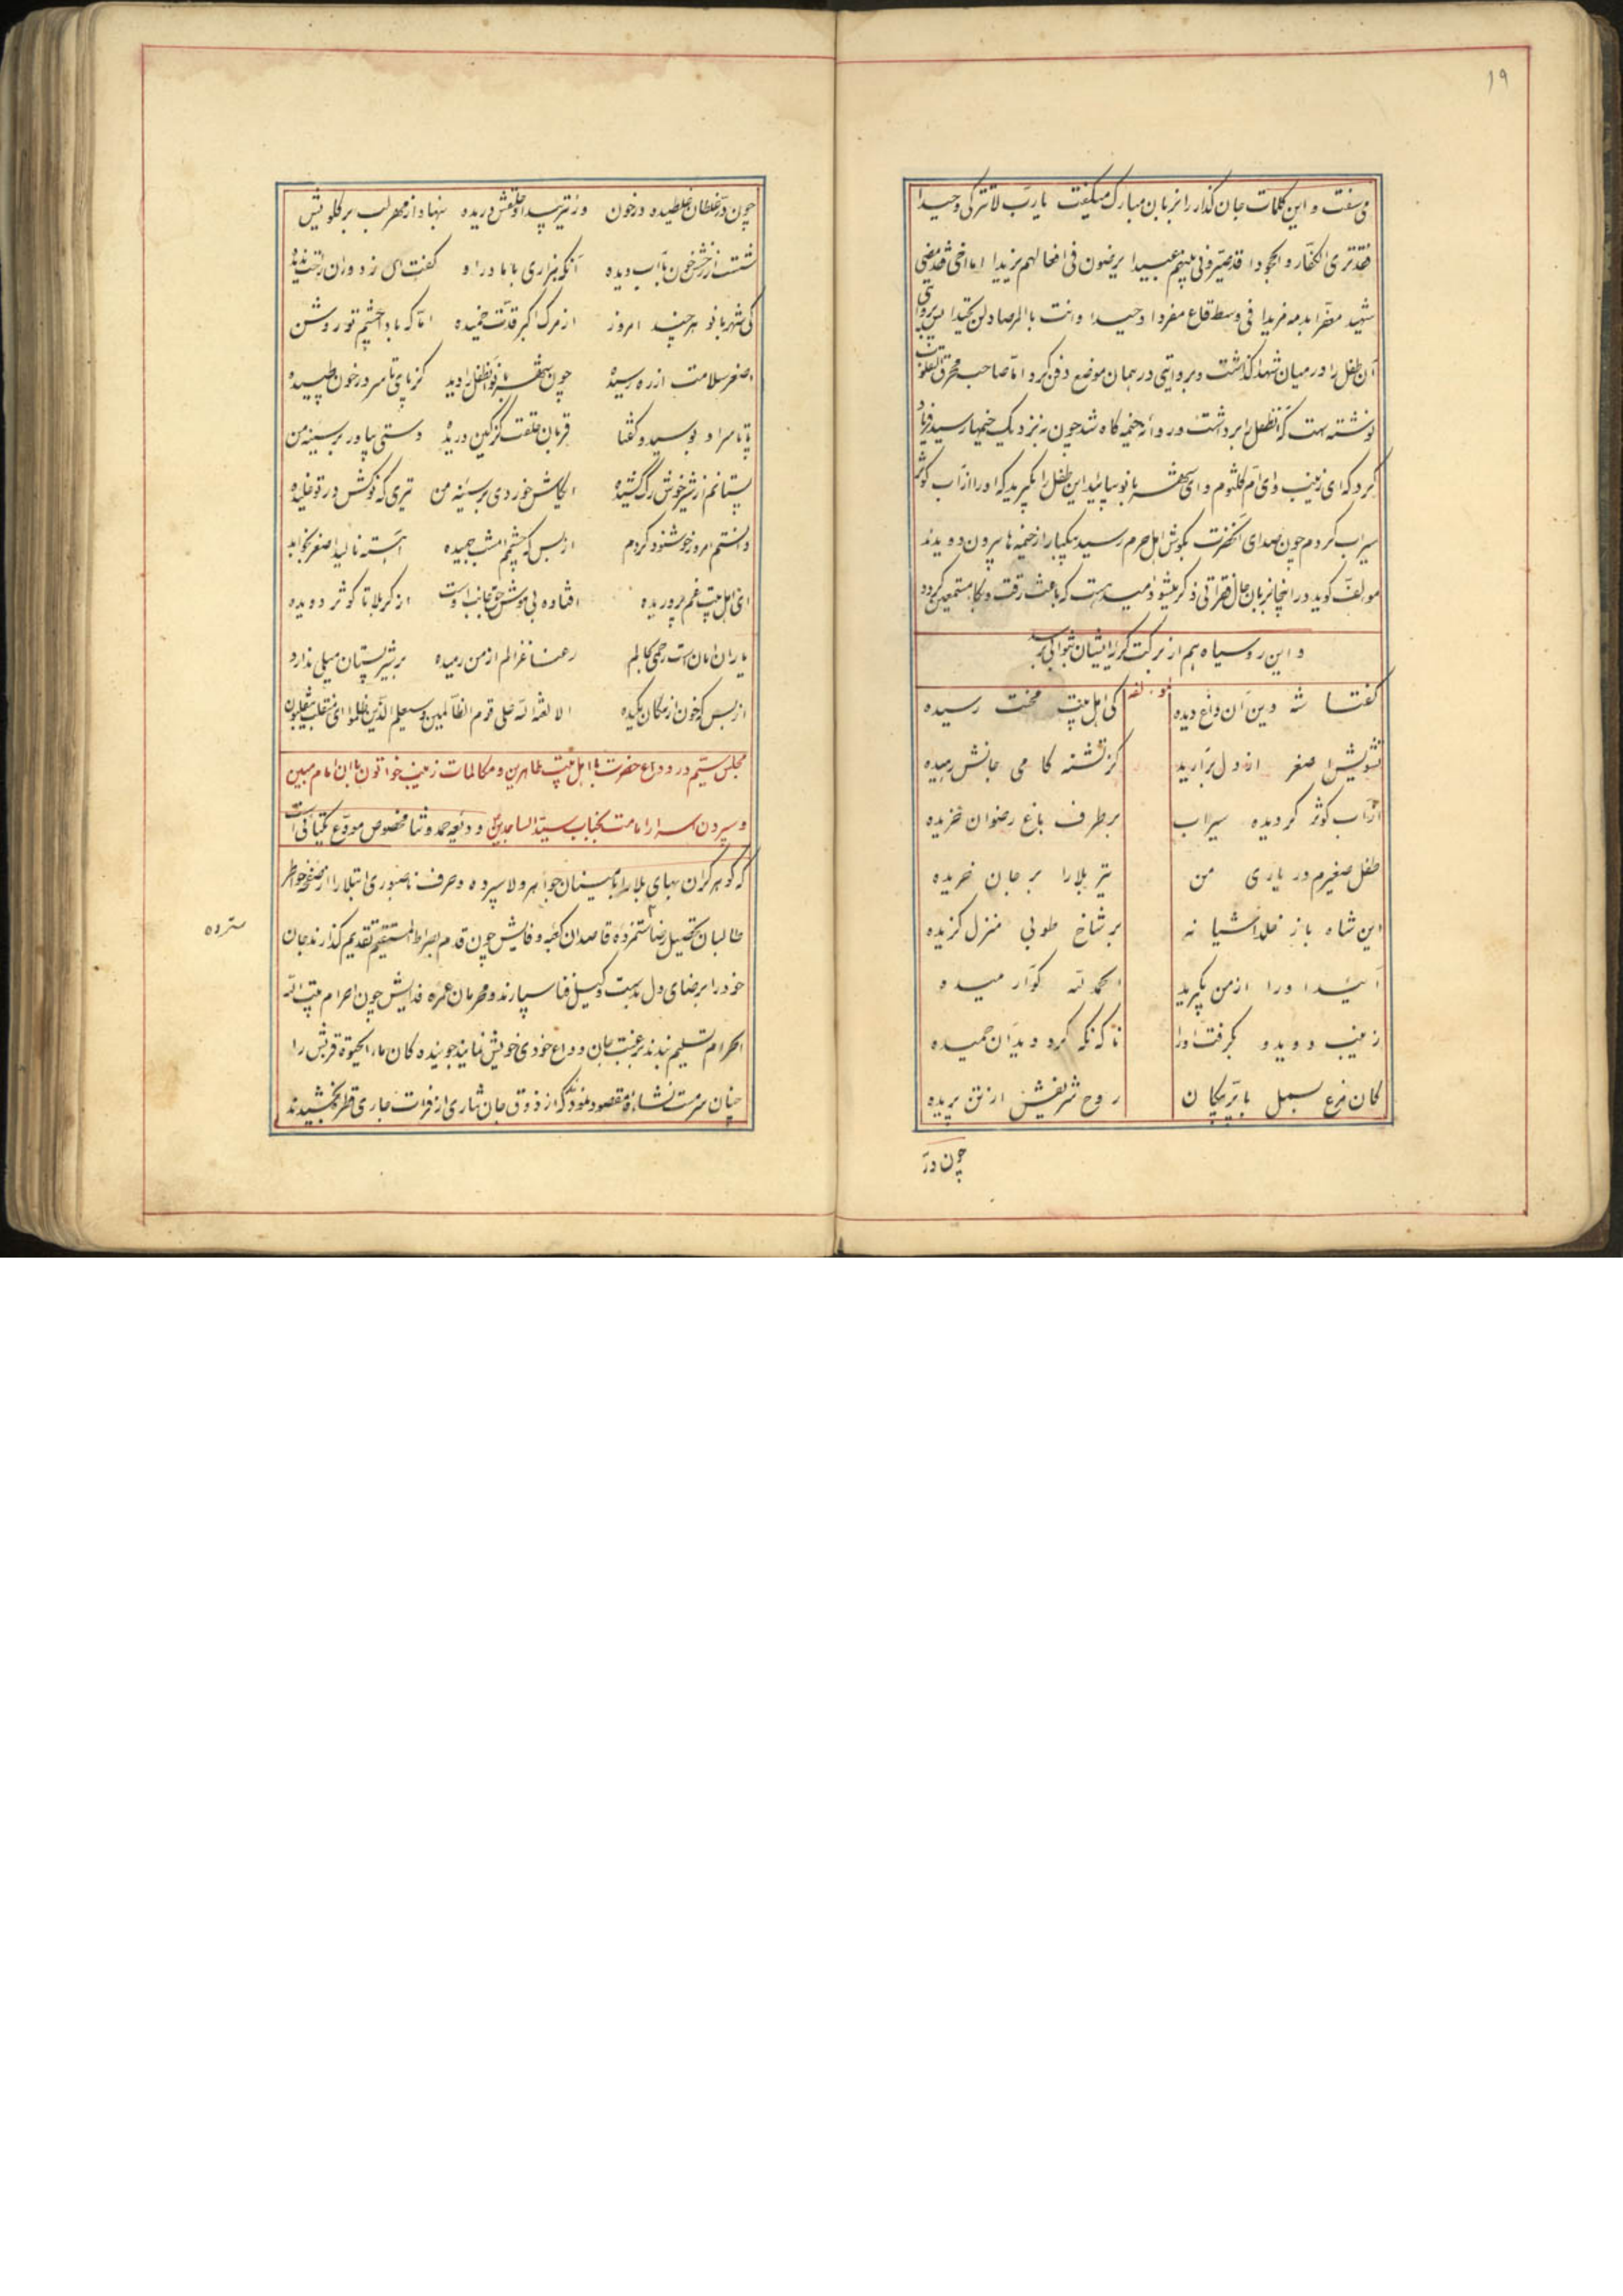 ۱۹
می سفت و این کلمات جان گذار را بزبان مبارک میگفت یارب لا تترکنی وحیدا
فقد تری الکفار و الجحودا قد صیرونی بینهم عبیدا یرضون فی افعالهم یزیدا اما اخی فقد مضی
شهیدا معفرا بدمه فریدا فی وسط قاع مفردا وحیدا وانت بالمرصاد لن تحیدا پس بروایتی
آن طفل را در میان شهدا گذاشت و بروایتی در همان موضع دفن کرد اما صاحب محرق القلوب
نوشته است که آنطفل را برداشت و روانه خیمه گاه شد چون به نزدیک خیمها رسید فریاد
کرد که ای زینب و ای ام کلثوم و ای شهربانو بیائید این طفل را بگیرید که او را از آب کوثر
سیراب کردم چون صدای آنحضرت بگوش اهل حرم رسید بیکبار از خیمه ها بیرون دویدند
مولف گوید در اینجا بزبان حال فقراتی ذکر میشود امید هست که باعث رقت و بکا مستمعین گردد
و این رو سیاه هم از برکت گریه ایشان بثوابی برسد
گفتا شه دین آن داغ دیده کی اهل بیت محنت رسیده
تشویش اصغر از دل برآرید کز تشنه کامی جانش رهیده
از آب کوثر گردیده سیراب بر طرف باغ رضوان خزیده
طفل صغیرم در یاری من تیر بلا را بر جان خریده
این شاه باز خلد آشیانه بر شاخ طوبی منزل گزیده
آئید او را از من بگیرید الحمد لله کوار میده
زینب دوید و بگرفت او را ناگه نگه کرد دید آن حمیده
کان مرغ بسمل با پر پیکان روح شریفش از تن پریده
چون در
چون در غلطان غلطیده در خون وز تیر بیداد حلقش دریده بنهاد از مهر لب بر گلویش
شست از رخش خون با آب دیده آنگه بزاری با مادر او گفت ای ز دوران راحت ندیده
کی شهربانو هر چند امروز از مرگ اکبر قدت خمیده اما که بادا چشم تو روشن
اصغر سلامت از ره رسیده چون شهربانو آنطفل را دید کز پای تا سر در خون طپیده
پا تا سر او بوسید و گفتا قربان حلقت کز کین دریده دستی بیاور بر سینه من
پستانم از شیر خوش رگ کشیده ایکاش خوردی بر سینه من تیری که نوکش در تو خلیده
دانستم امروز خوشنود کردم از بس که چشمم امشب جهیده آهسته نالید اصغر بخوابد
ای اهل بیت غم پروریده افتاده بی هوش حق جانب اوست از کربلا تا کوثر دویده
یاران امان است رحمی بحالم رعنا غزالم از من رمیده بر شیر پستان میلی ندارد
از بس که خون از پیکان مکیده الا لعنة الله علی قوم الظالمین و سیعلم الذین ظلموا ای منقلب ینقلبون
مجلس سیم در وداع حضرت با اهل بیت طاهرین و مکالمات زینب خواتون با آن امام مبین
و سپردن اسرار امامت بجناب سید الساجدین و ودیعه حمد و ثنا مخصوص مودع یکتائی است
که گوهر گران بهای بلا را بامینان جواهر ولا سپرده و حرف ناصبوری ابتلا را از صفحه خواطر
طالبان تحصیل رضا سترده قاصدان کعبه وفایش چون قدم بصراط المستقیم تقدیم گذارند جان
سترده
خود را برضای دل بدست وکیل فنا سپارند و محرمان عمره فدایش چون احرام بیت الله
الحرام تسلیم بندند برغبت جان وداع خودی خویش نمایند جوینده کان ماء الحیوة قربش را
چنان سرمست نشاءه مقصود نمود که از ذوق جان نثاری از فرات جاری قطره نچشیدند